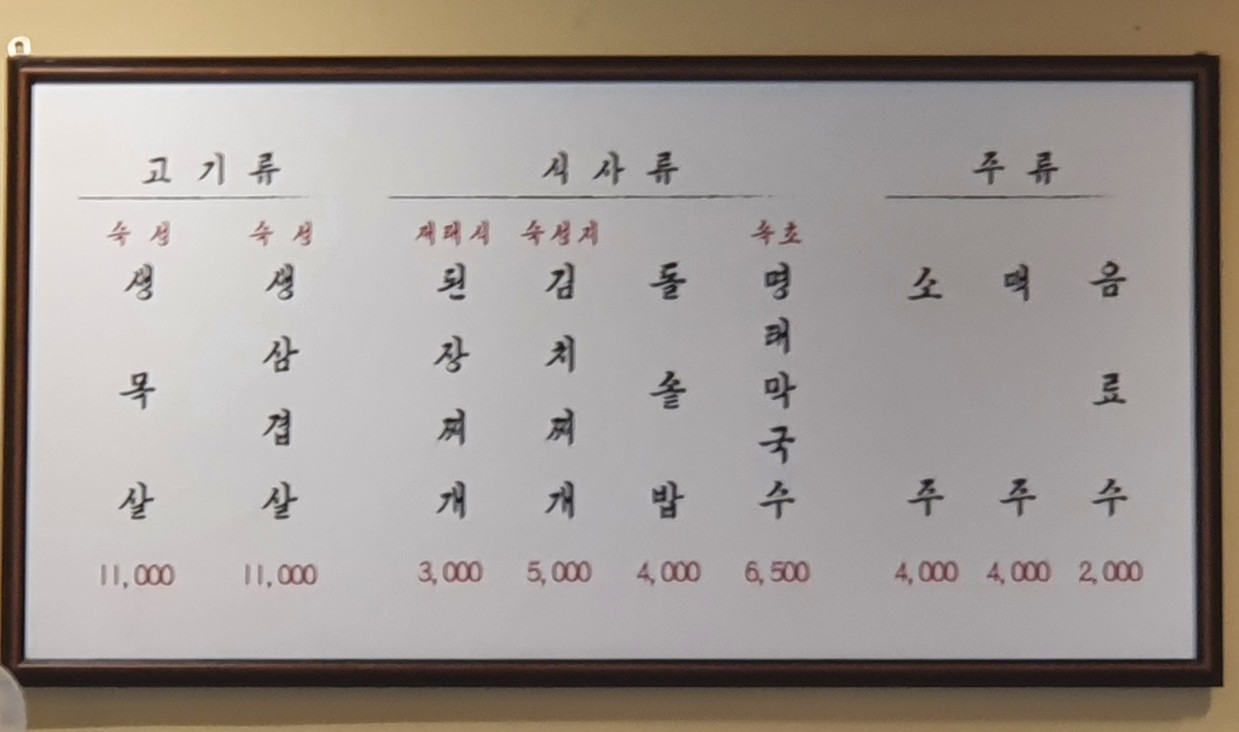 고기류
숙성
생목살
11,000
숙성
생삼겹살
11,000
식사류
재래식
된장찌개
3,000
숙성지
김치찌개
5,000
돌솥밥
4,000
속초
명태막국수
6,500
주류
소주
4,000
맥주
4,000
음료수
2,000